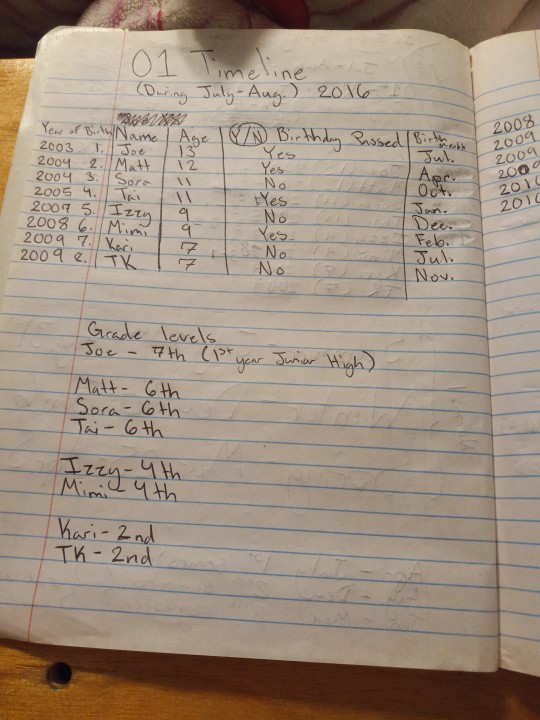 01 Timeline
(During July-Aug.) 2016
Year of Birth Name Age (Y/N) Birthday Passed Birth month
2003 1. Joe 13 Yes Jul.
2004 2. Matt 12 Yes Apr.
2004 3. Sora 11 No Oct.
2005 4. Tai 11 Yes Jan.
2007 5. Izzy 9 No Dec.
2008 6. Mimi 9 Yes Feb.
2009 7. Kari 7 No Jul.
2009 8. TK 7 No Nov.
Grade levels
Joe - 7th (1st year Junior High)
Matt - 6th
Sora - 6th
Tai - 6th
Izzy - 4th
Mimi - 4th
Kari - 2nd
TK - 2nd
2008
2009
2009